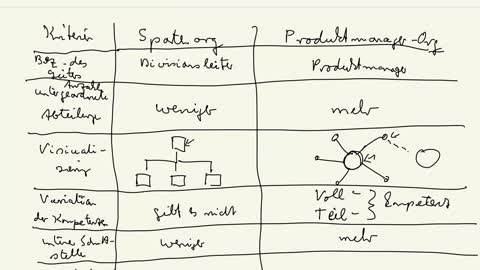 Kriterien Spartenorg Produktmanager-Org
Bez. des Leiters Divisionsleiter Produktmanager
Anzahl
untergeordnete
Abteilung weniger mehr
Visuali-
sierung
Variation
der Kompetenzen gibt es nicht Voll - Teil - Kompetenz
interne Schnitt-
stelle weniger mehr